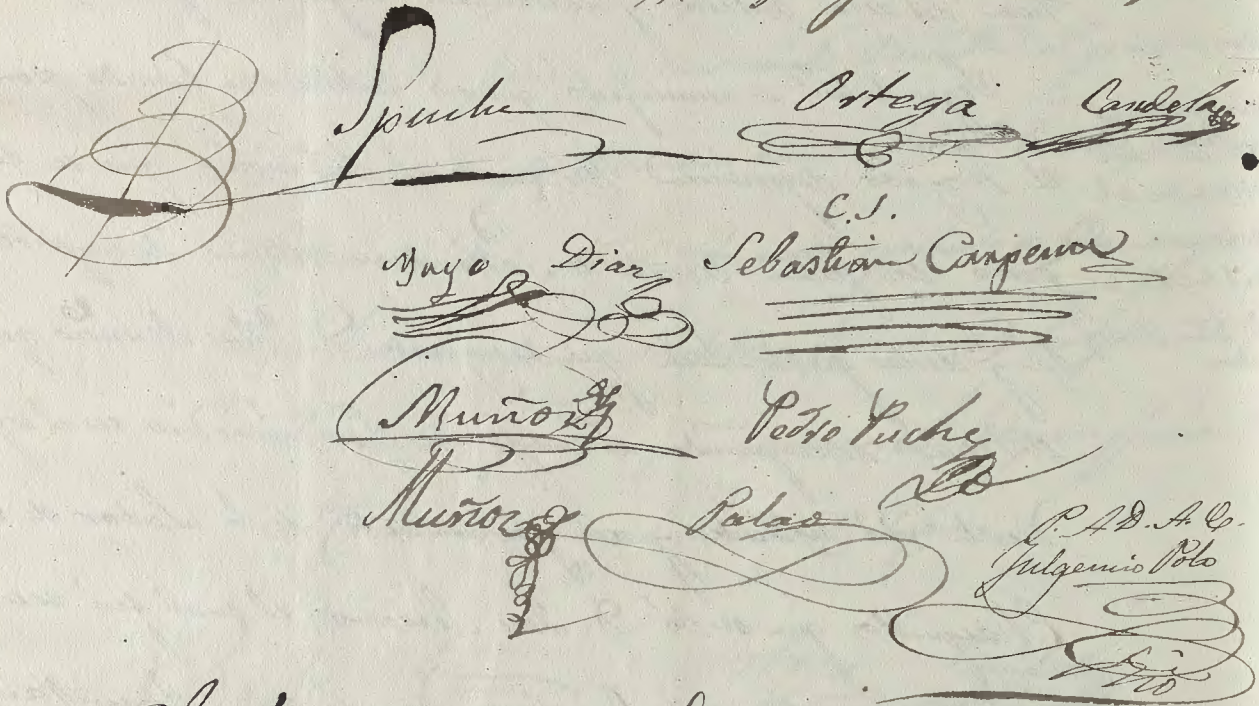 Spuche Ortega Candela
C. S.
Mayo Diaz Sebastian Carpena
Muñoz Pedro Puche
Muñoz Palao
P. A. D. A. C.
Fulgencio Polo
Srio